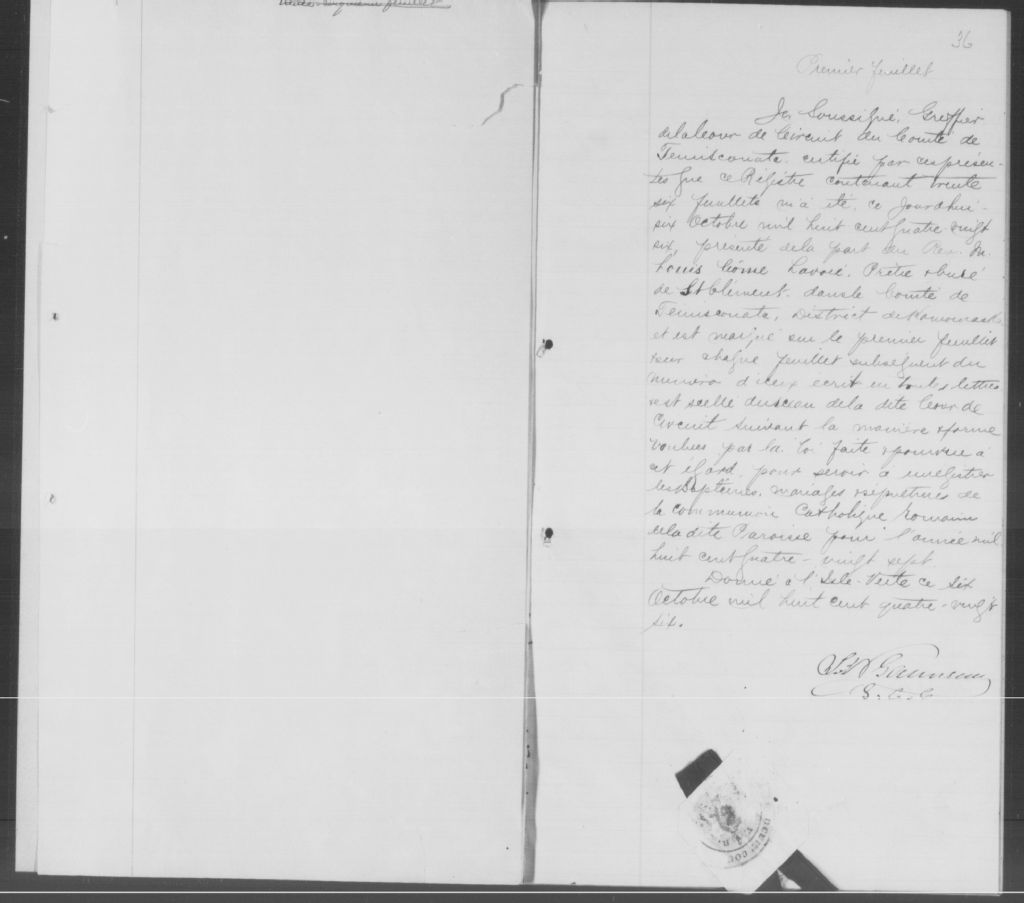 feuillet
36
Premier feuillet
Je, Soussigné, Greffier
de la Cour de Circuit du Comté de
Temisconata, certifie par ces présen-
tes que ce Régistre contenant trente
six feuillets m'a été, ce Jourdhui
six Octobre mil huit cent quatre-vingt
six, présenté de la part du Rev. M.
Louis Côme Lavoie, Prêtre & Curé
de St Clément, dans le Comté de
Temisconata, District de Kamouraska
et est marqué sur le premier feuillet
& sur chaque feuillet subséquent du
numéro d'iceux écrit en toutes lettres
& est scellé du sceau de la dite Cour de
Circuit suivant la manière & forme
voulues par la Loi faite & pourvue à
cet égard, pour servir à enregistrer
les Baptêmes, mariages & sépultures de
la communion Catholique Romaine
de la dite Paroisse pour l'année mil
huit cent quatre-vingt sept.
Donné à l'Isle-Verte ce six
Octobre mil huit cent quatre-vingt
six.
G. C. C.